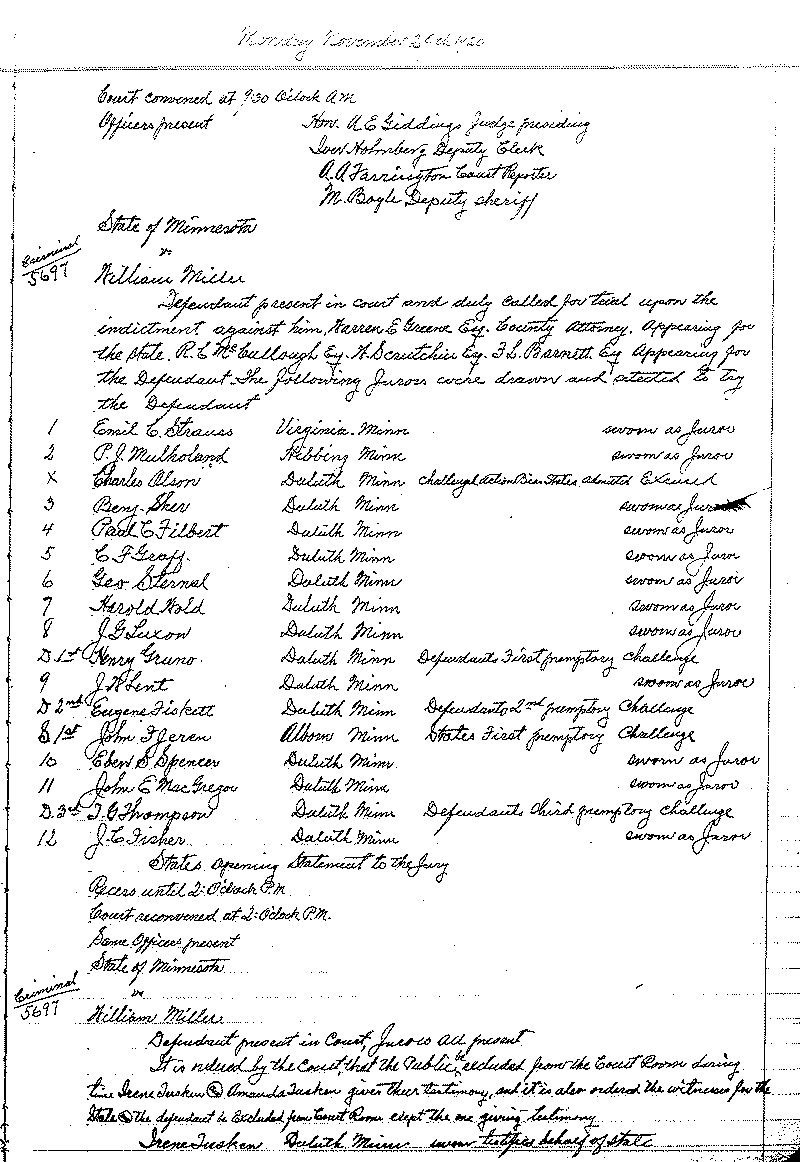 Monday November 29th 1920
Court convened at 9:30 O'clock A.M
Officers present Hon. A E Giddings Judge presiding
Iver Holmberg Deputy Clerk
A. A Farrington Court Reporter
M. Boyle Deputy sheriff
State of Minnesota
vs
Criminal
5697
William Miller
Defendant present in court and duly called for trial upon the
indictment against him, Warren E Greene Eq. County Attorney, Appearing for
the state. R. C McCullough Eq. W Scrutchin Eq. F L. Barnett Eq Appearing for
the Defendant. The following Jurors were drawn and selected to try
the Defendant
1 Emil C. Strauss Virginia. Minn sworn as Juror
2 P. J. Mulholand Hibbing Minn sworn as Juror
X Charles Olson Duluth Minn Challenge States admitted Excused
3 Benj. Sher Duluth Minn sworn as Juror
4 Paul C Filbert Duluth Minn sworn as Juror
5 C. F Graff. Duluth Minn sworn as Juror
6 Geo Sternal Duluth Minn sworn as Juror
7 Harold Hold Duluth Minn sworn as Juror
8 J. G Luxon Duluth Minn sworn as Juror
D 1st Henry Gruno. Duluth Minn Defendants First premptory Challenge
9 J. H Lent Duluth Minn sworn as Juror
D 2nd Eugene Fiskett Duluth Minn Defendants 2nd premptory Challenge
S 1st John F Jeren Alborn Minn States First premptory Challenge
10 Eben S Spencer Duluth Minn. sworn as Juror
11 John E MacGregor Duluth Minn sworn as Juror
D. 3rd T. G Thompson Duluth Minn Defendants third premptory challenge
12 J. C Fisher Duluth Minn sworn as Juror
States opening Statement to the Jury
Recess until 2: O'clock P.M
Court reconvened at 2: O'clock P.M.
Same Officers present
State of Minnesota
vs
Criminal
5697
William Miller
Defendant present in Court, Jurors all present
It is ordered by the Court, that the Public be excluded from the Court Room during
time Irene Tusken & Amanda Tusken given their testimony, and it is also ordered the witnesses for the
State & the defendant be Excluded from Court Room except the one giving testimony
Irene Tusken Duluth Minn sworn testifies behalf of State